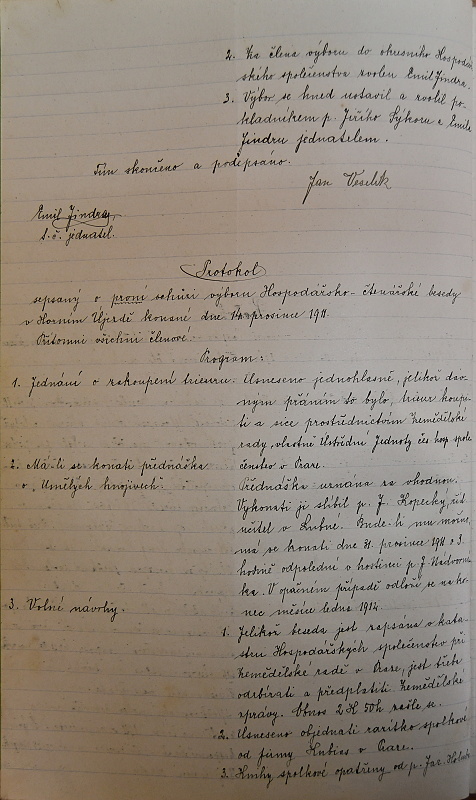 2. Za člena výboru do okresního Hospodář-
ského společenstva zvolen Emil Jindra.
3. Výbor se hned ustavil a zvolil po-
kladníkem p. Jiřího Sýkoru a Emila
Jindru jednatelem.
Tím skončeno a podepsáno.
Jan Veselík
Emil Jindra
t. č. jednatel.
Protokol
sepsaný o první schůzi výboru Hospodářsko-čtenářské besedy
v Horním Újezdě konané dne prosince 1911.
Přítomni všichni členové.
Program:
1. Jednání o zakoupení trieuru. Usneseno jednohlasně, jelikož dáv-
ným přáním to bylo, trieur koupi-
ti a sice prostřednictvím Zemědělské
rady, vlastně Ústřední Jednoty čes. hosp. spole-
čenstev v Praze.
2. Má-li se konati přednáška Přednáška uznána za vhodnou.
o "Umělých hnojivech". Vykonati ji slíbil p. J. Kopecký, říd.
učitel v Lubné. Bude-li mu možno,
má se konati dne 31. prosince 1911 o 3.
hodině odpolední v hostinci p. J. Nádvorní-
ka. V opačném případě odloží se na ko-
nec měsíce ledna 1912.
3. Volné návrhy.
1. Jelikož beseda jest zapsána v kata-
stru Hospodářských společenstev při
zemědělské radě v Praze, jest třeba
odebírati a předplatiti Zemědělské
zprávy. Obnos 2 K 50 h zašle se.
2. Usneseno objednati razítko spolkové
od firmy v Praze.
3. Knihy spolkové opatřeny od p. Jar.